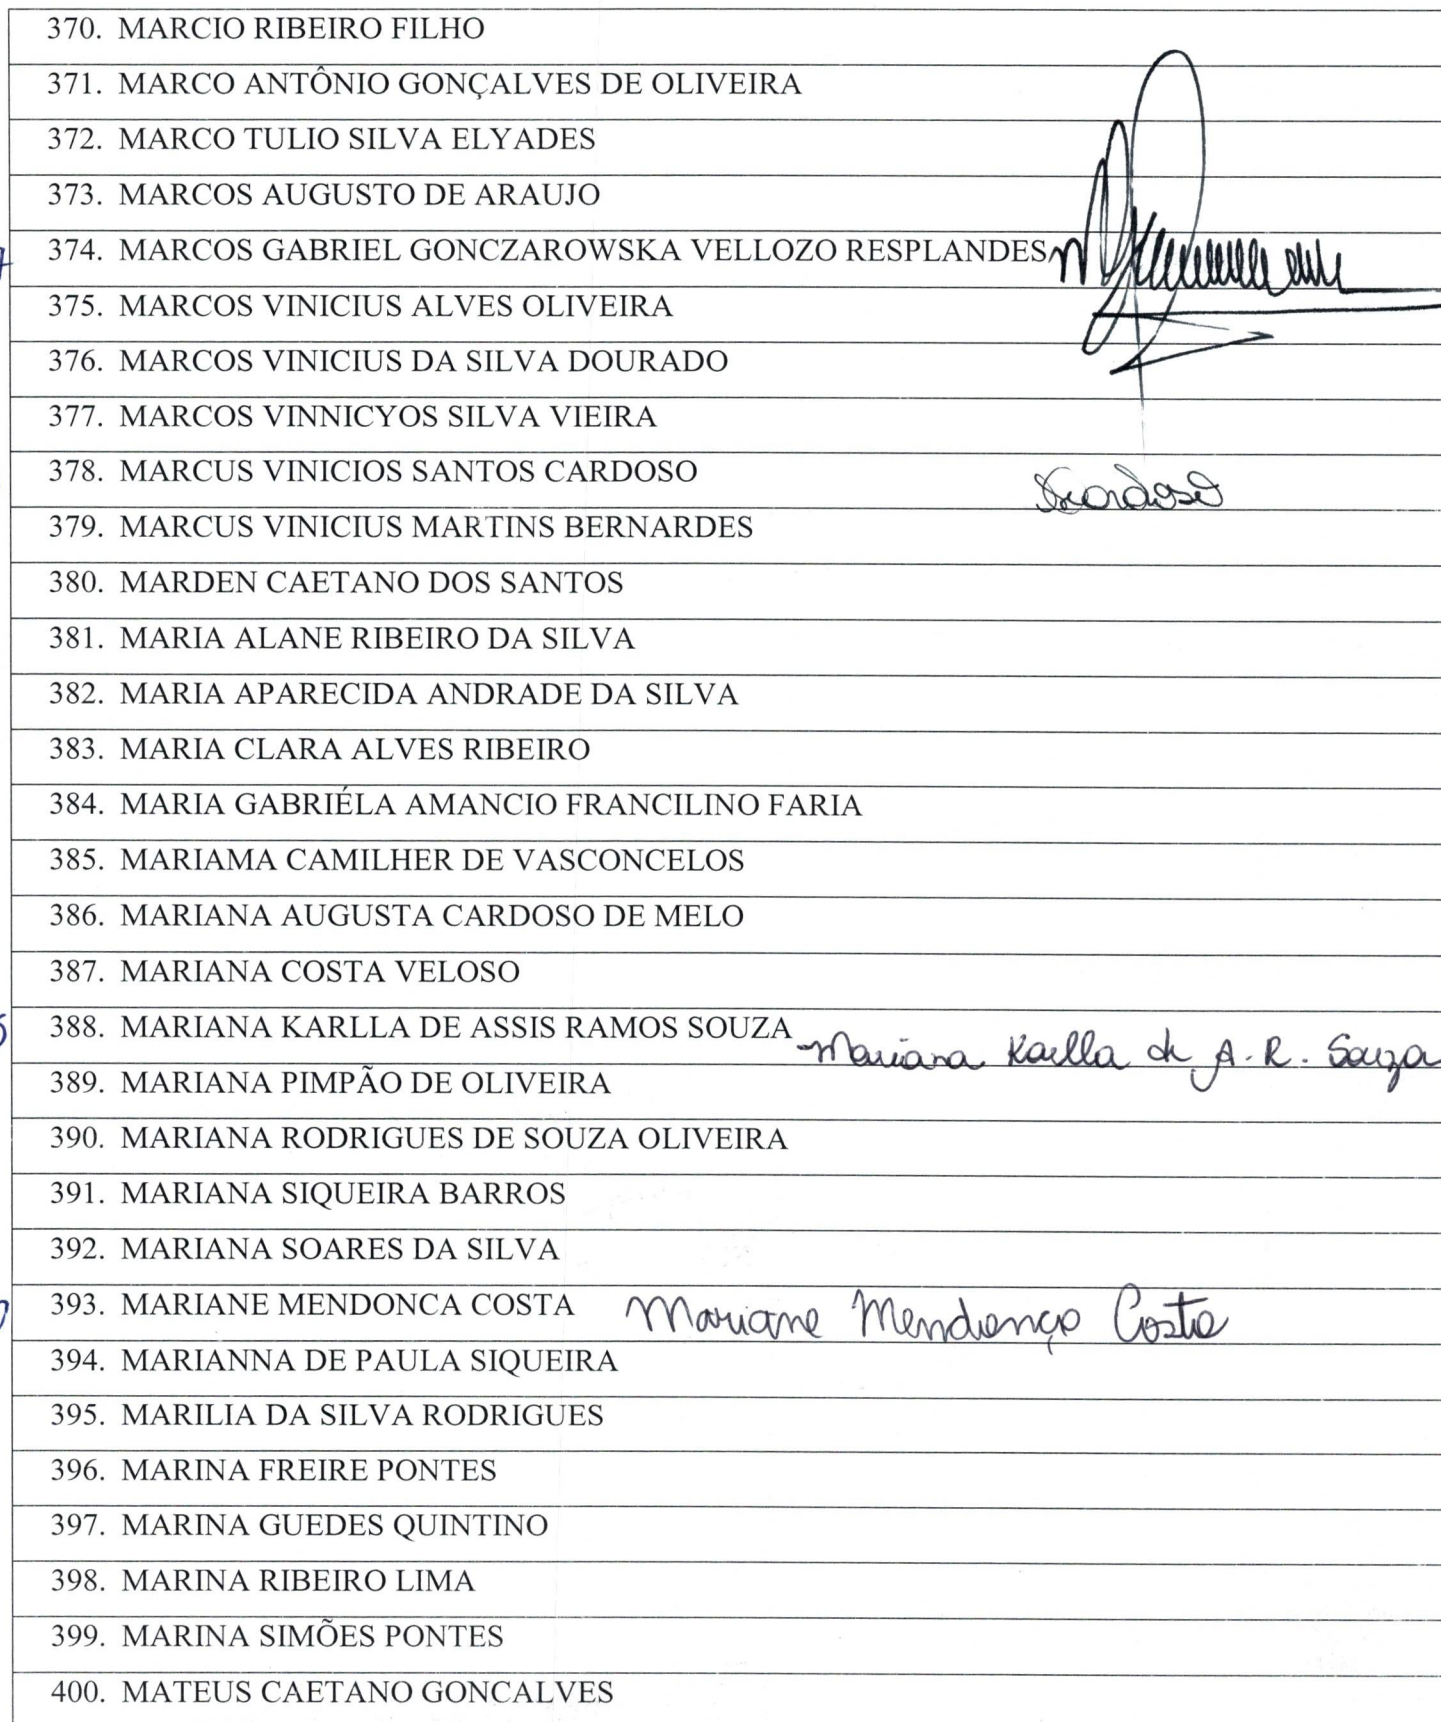 370. MARCIO RIBEIRO FILHO
371. MARCO ANTÔNIO GONÇALVES DE OLIVEIRA
372. MARCO TULIO SILVA ELYADES
373. MARCOS AUGUSTO DE ARAUJO
374. MARCOS GABRIEL GONCZAROWSKA VELLOZO RESPLANDES
375. MARCOS VINICIUS ALVES OLIVEIRA
376. MARCOS VINICIUS DA SILVA DOURADO
377. MARCOS VINNICYOS SILVA VIEIRA
378. MARCUS VINICIOS SANTOS CARDOSO
379. MARCUS VINICIUS MARTINS BERNARDES
380. MARDEN CAETANO DOS SANTOS
381. MARIA ALANE RIBEIRO DA SILVA
382. MARIA APARECIDA ANDRADE DA SILVA
383. MARIA CLARA ALVES RIBEIRO
384. MARIA GABRIÉLA AMANCIO FRANCILINO FARIA
385. MARIAMA CAMILHER DE VASCONCELOS
386. MARIANA AUGUSTA CARDOSO DE MELO
387. MARIANA COSTA VELOSO
388. MARIANA KARLLA DE ASSIS RAMOS SOUZA Mariana Karlla de A. R. Souza
389. MARIANA PIMPÃO DE OLIVEIRA
390. MARIANA RODRIGUES DE SOUZA OLIVEIRA
391. MARIANA SIQUEIRA BARROS
392. MARIANA SOARES DA SILVA
393. MARIANE MENDONCA COSTA Mariane Mendonça Costa
394. MARIANNA DE PAULA SIQUEIRA
395. MARILIA DA SILVA RODRIGUES
396. MARINA FREIRE PONTES
397. MARINA GUEDES QUINTINO
398. MARINA RIBEIRO LIMA
399. MARINA SIMÕES PONTES
400. MATEUS CAETANO GONCALVES